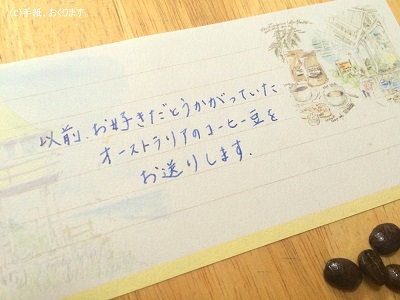 (c)手紙、おくります。
以前、お好きだとうかがっていた
オーストラリアのコーヒー豆を
お送りします.